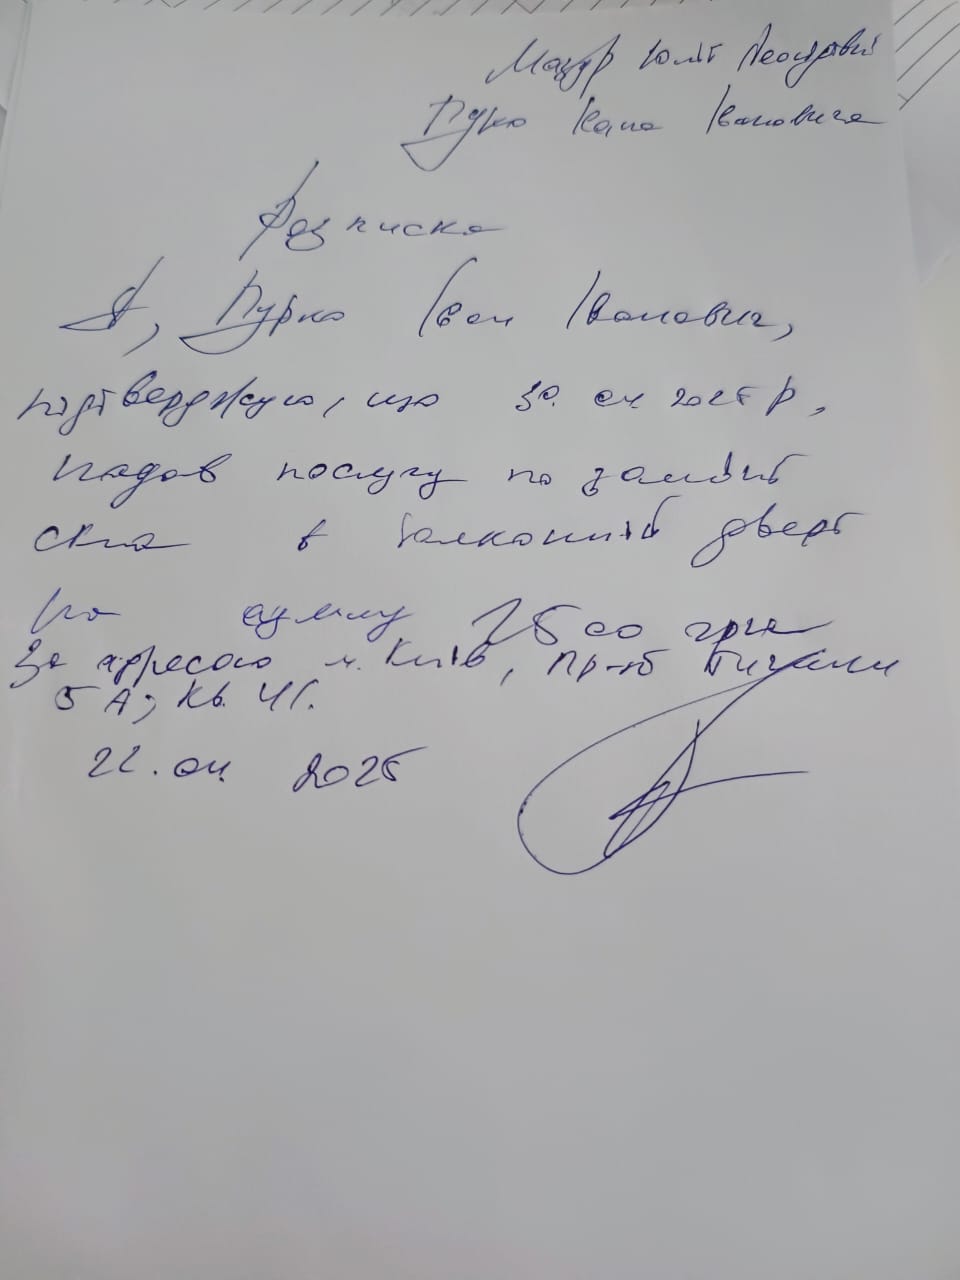 Мазур Юлії
Пурко Івана Івановича
Розписка
Я, Пурко Іван Іванович,
підтверджую, що 30. 04 2025 р,
надав послугу по заміні
скла в балконній двері
на сумму 7500 грн
За адресою м. Київ, пр-т Тичини
5 А; кв. 41.
22. 04 2025